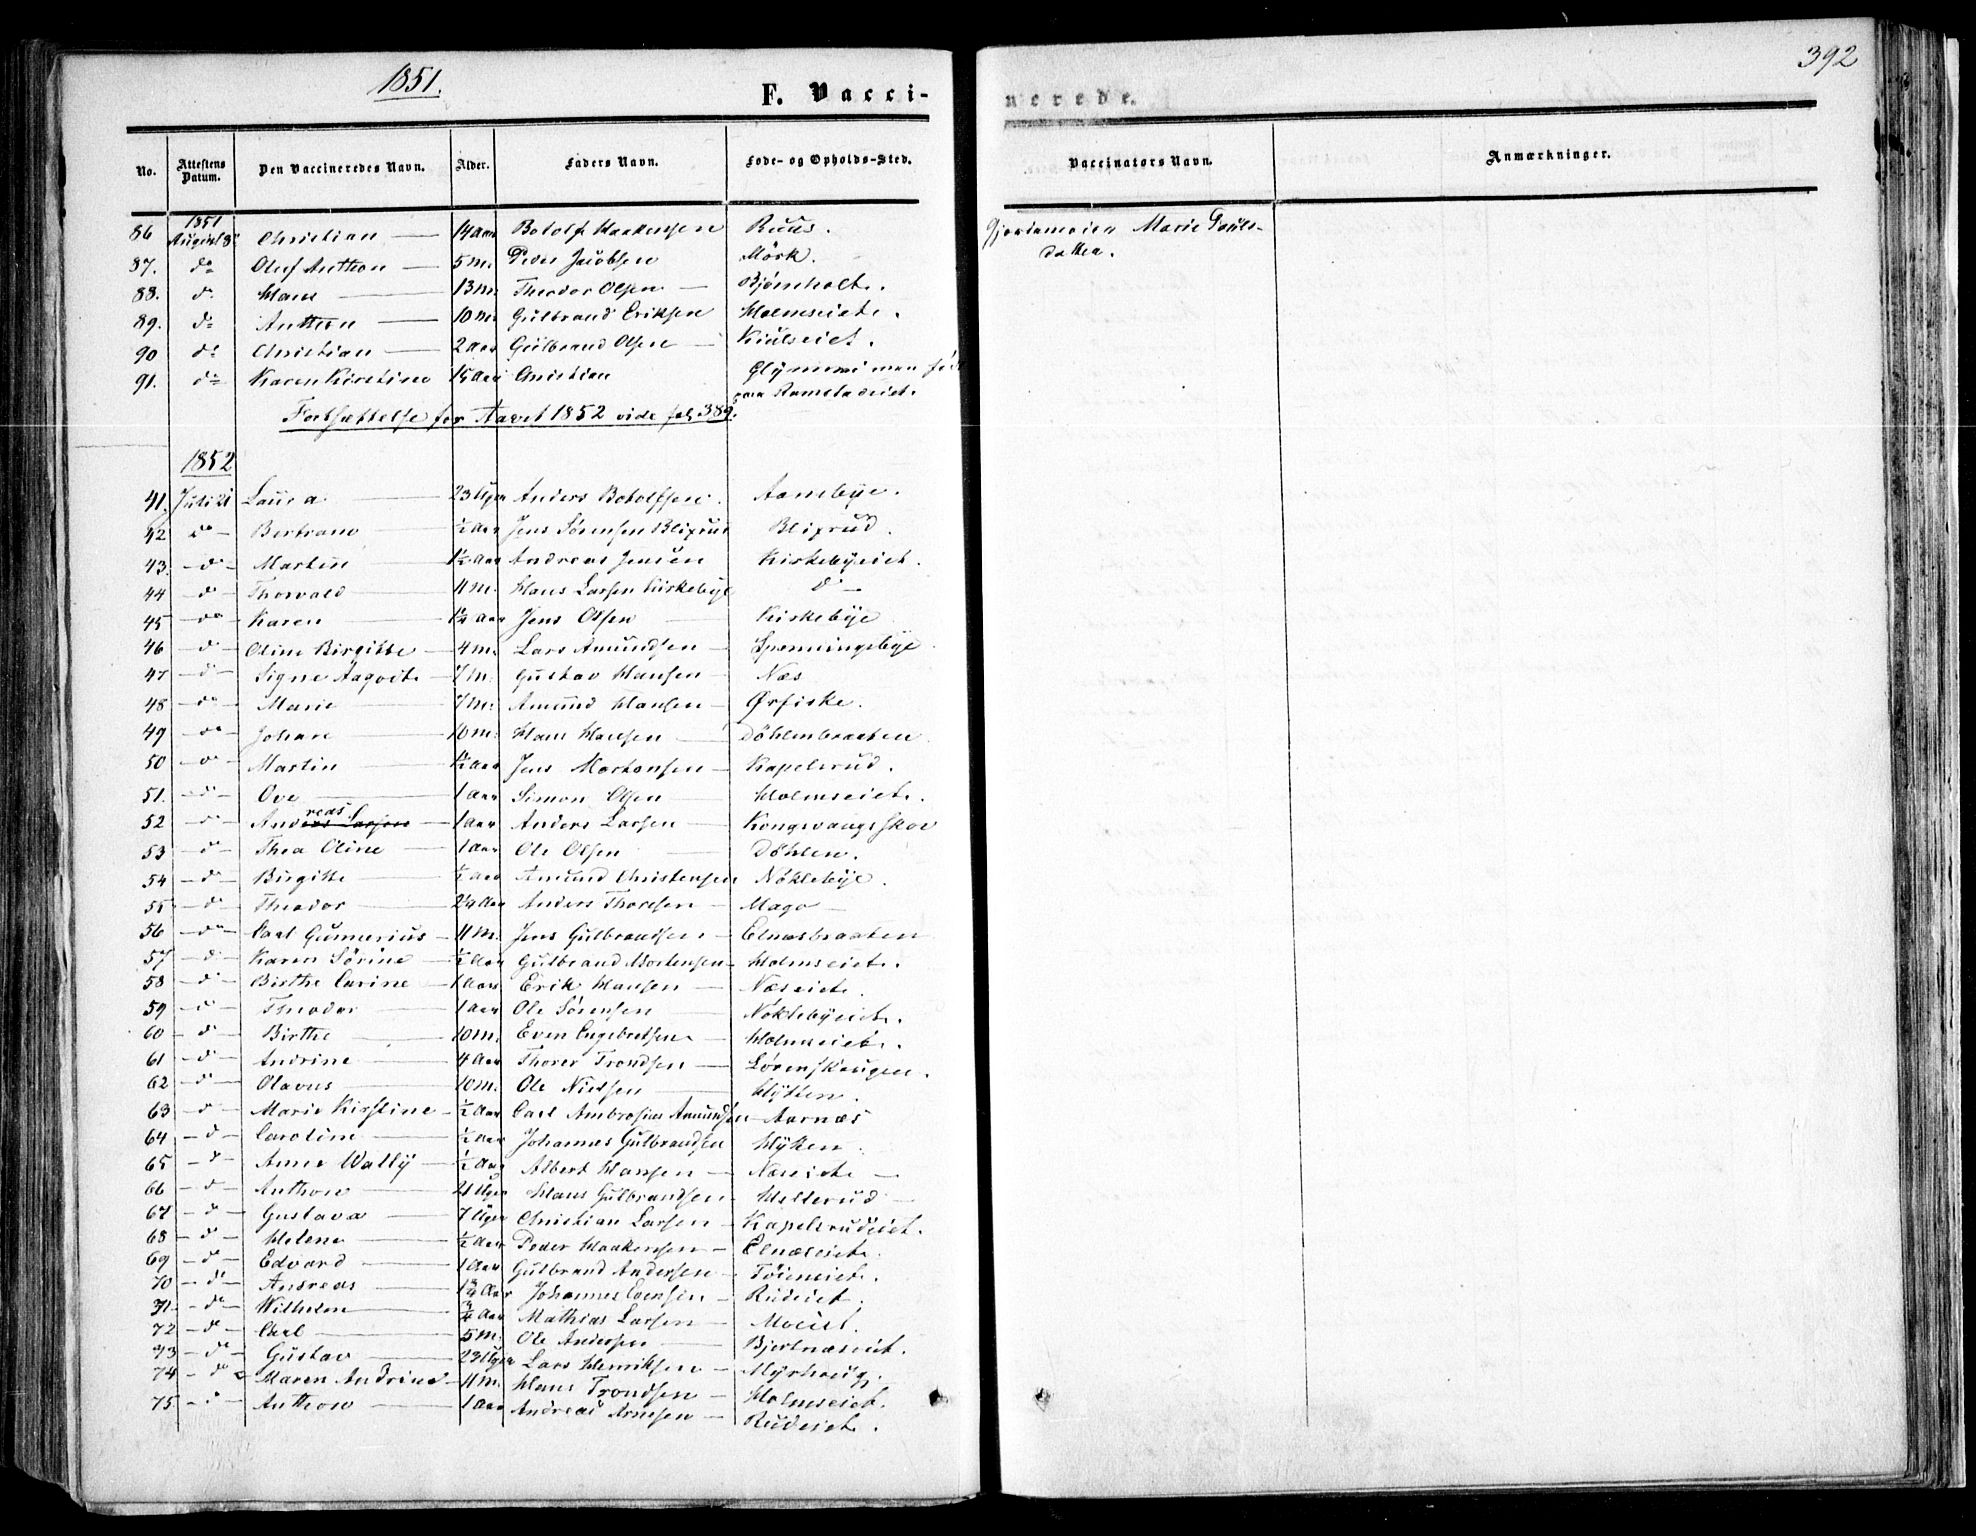 1851.
F. Vacci-
nerede.
392
No. Attestens Datum. Den Vaccineredes Navn. Alder. Faders Navn. Føde- og Opholds-Sted. Vaccinators Navn. Anmærkninger.
1851
86 August 8 Christian — 14 Aar Botolf Haakensen Ruus. Gjordemoder Marie Pouls-
datter.
87. do Oluf Anthon — 5 M. Peder Jacobsen Mörk.
88. do Hans — 13 M. Theodor Olsen — Bjørnholt.
89. do Anthon — 10 M Gulbrand Eriksen Holmseiet.
90 do Christian — 2 Aar Gulbrand Olsen — Kiulseiet.
91. do Karen Kirstine 15 Aar Christian
paa Aamotseiet.
Fortsættelse for Aaret 1852 vide fol. 389.
1852
41. Juli 21 Laura — 23 Uger Anders Botolfsen. Aambye.
42 do — Bertram — ½ Aar Jens Sörensen Blixrud Blixrud.
43. — do — Martin 1½ Aar Andreas Jensen Kirkebyeiet.
44 — do — Thorvald — 4 M. Hans Larsen Kirkebye do —
45 — do — Karen — 1¼ Aar Jens Olsen — Kirkebye
46 — do — Oline Birgitte — 4 M. Lars Amundsen — Spenningsbye
47 — do — Signe Aagot — 7 M. Gustav Hansen — Næs
48 — do — Marie — 7 M. Amund Hansen — Ørfiske.
49 — do — Johan — 10 M. Hans Hansen — Döhlenbraaten
50 — do — Martin — 1½ Aar Jens Mortensen — Kapelsrud.
51. — do — Ove — 1 Aar Simon Olsen — Holmseiet.
52 — do — Andreas — 1 Aar Anders Larsen — Kongsvangsskov
53 — do — Thea Oline — 1 Aar Ole Olsen — Döhlen.
54 — do — Birgitte — ½ Aar Amund Christensen Nöklebye.
55 — do — Theodor — 2¼ Aar Anders Thoresen — Mago —
56 — do — Carl Gunerius — 11 M. Jens Gulbrandsen — Elnæsbraaten
57 — do — Karen Sörine — ½ Aar Gulbrand Mortensen — Holmseiet.
58 — do — Birthe Carine — 1 Aar Erik Hansen — Næseiet.
59 — do — Theodor — 1 Aar Ole Sörensen — Nöklebyeiet.
60 — do — Birthe — 10 M. Even Engebretsen — Holmseiet.
61 — do — Andrine — 4 Aar Thorer Trondsen — Lörenskougen.
62 — do — Olavus — 10 M. Ole Nielsen — Hytten.
63 — do — Marie Kirstine — ½ Aar Carl Ambrosius Amundsen — Aarnæs
64 — do — Caroline — ½ Aar Johannes Gulbrandsen Hytten.
65 — do — Anne Wally — ½ Aar Albert Hansen — Næseiet —
66 — do — Anthon — 21 Uger Hans Gulbrandsen — Hellerud —
67 — do — Gustava — 7 Uger Christian Larsen — Kapelsrudeiet.
68 — do — Helene — ½ Aar Peder Haakensen — Elnæseiet.
69 — do — Edvard — 1 Aar Gulbrand Andersen — Töieneiet.
70 — do — Andreas — 1¾ Aar Johannes Evensen — Rudeiet.
71 — do — Wilhelm — ¾ Aar Mathias Larsen — Moeiet.
72 — do — Carl — 5 M. Ole Andersen — Bjertnæseiet.
73 — do — Gustav — 23 Uger Lars Henriksen — Myrhoug.
74 — do — Maren Andrine — 11 M. Hans Trondsen — Holmseiet.
75 — do — Anthon — 1 Aar Andreas Arnesen — Rudeiet.